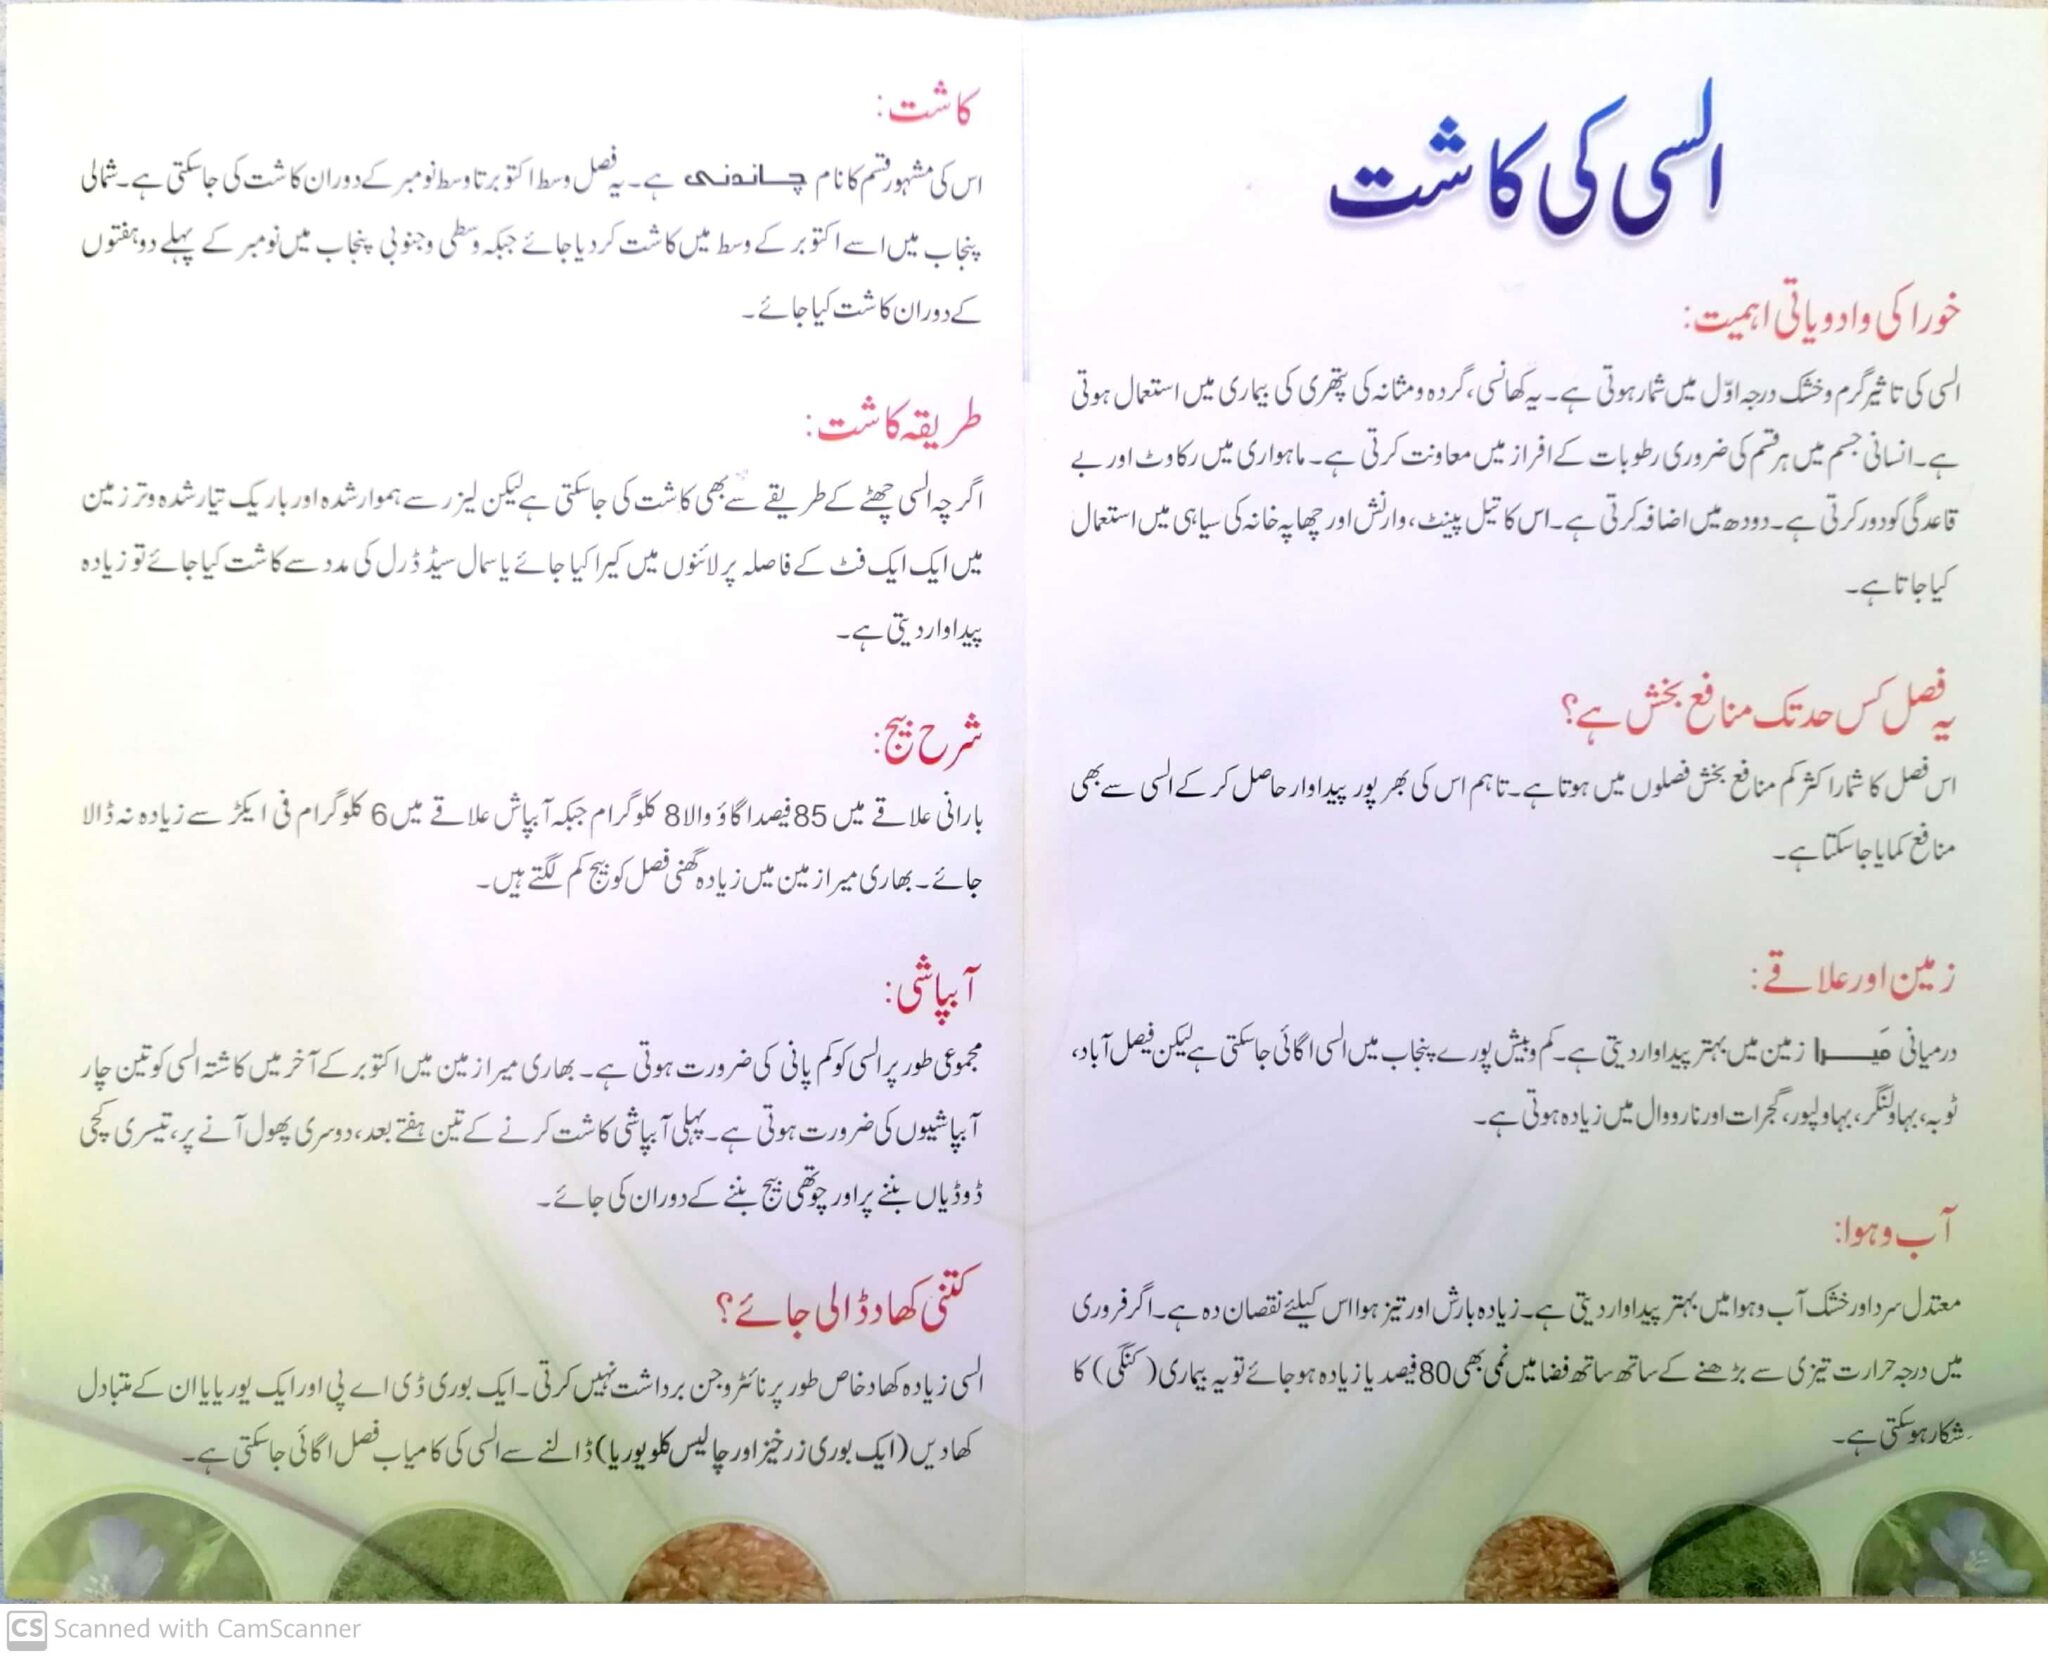 السی کی کاشت
خوراکی وادویاتی اہمیت:
السی کی تاثیر گرم وخشک درجہ اوّل میں شمار ہوتی ہے۔ یہ کھانسی، گردہ ومثانہ کی پتھری کی بیماری میں استعمال ہوتی
ہے۔ انسانی جسم میں ہر قسم کی ضروری رطوبات کے افراز میں معاونت کرتی ہے۔ ماہواری میں رکاوٹ اور بے
قاعدگی کو دور کرتی ہے۔ دودھ میں اضافہ کرتی ہے۔ اس کا تیل پینٹ، وارنش اور چھاپہ خانہ کی سیاہی میں استعمال
کیا جاتا ہے۔
یہ فصل کس حد تک منافع بخش ہے؟
اس فصل کا شمار اکثر کم منافع بخش فصلوں میں ہوتا ہے۔ تاہم اس کی بھر پور پیداوار حاصل کر کے السی سے بھی
منافع کمایا جاسکتا ہے۔
زمین اور علاقے:
درمیانی مَیرا زمین میں بہتر پیداوار دیتی ہے۔ کم وبیش پورے پنجاب میں السی اگائی جاسکتی ہے لیکن فیصل آباد،
ٹوبہ، بہاولنگر، بہاولپور، گجرات اور نارووال میں زیادہ ہوتی ہے۔
آب وہوا:
معتدل سرد اور خشک آب وہوا میں بہتر پیداوار دیتی ہے۔ زیادہ بارش اور تیز ہوا اس کیلئے نقصان دہ ہے۔ اگر فروری
میں درجہ حرارت تیزی سے بڑھنے کے ساتھ ساتھ فضا میں نمی بھی 80 فیصد یا زیادہ ہو جائے تو یہ بیماری (کنگی) کا
شکار ہوسکتی ہے۔
کاشت:
اس کی مشہور قسم کا نام چاندنی ہے۔ یہ فصل وسط اکتوبر تا وسط نومبر کے دوران کاشت کی جاسکتی ہے۔ شمالی
پنجاب میں اسے اکتوبر کے وسط میں کاشت کر دیا جائے جبکہ وسطی وجنوبی پنجاب میں نومبر کے پہلے دو ہفتوں
کے دوران کاشت کیا جائے۔
طریقہ کاشت:
اگرچہ السی چھٹے کے طریقے سے بھی کاشت کی جاسکتی ہے لیکن لیزر سے ہموار شدہ اور باریک تیار شدہ وتر زمین
میں ایک ایک فٹ کے فاصلہ پر لائنوں میں کیرا کیا جائے یا سمال سیڈ ڈرل کی مدد سے کاشت کیا جائے تو زیادہ
پیداوار دیتی ہے۔
شرح بیج:
بارانی علاقے میں 85 فیصد اگاؤ والا 8 کلوگرام جبکہ آبپاش علاقے میں 6 کلوگرام فی ایکڑ سے زیادہ نہ ڈالا
جائے۔ بھاری میرا زمین میں زیادہ گھنی فصل کو بیج کم لگتے ہیں۔
آبپاشی:
مجموعی طور پر السی کو کم پانی کی ضرورت ہوتی ہے۔ بھاری میرا زمین میں اکتوبر کے آخر میں کاشتہ السی کو تین چار
آبپاشیوں کی ضرورت ہوتی ہے۔ پہلی آبپاشی کاشت کرنے کے تین ہفتے بعد، دوسری پھول آنے پر، تیسری کچی
ڈوڈیاں بننے پر اور چوتھی بیج بننے کے دوران کی جائے۔
کتنی کھاد ڈالی جائے؟
السی زیادہ کھاد خاص طور پر نائٹروجن برداشت نہیں کرتی۔ ایک بوری ڈی اے پی اور ایک یوریا یا ان کے متبادل
کھادیں (ایک بوری زرخیز اور چالیس کلو یوریا) ڈالنے سے السی کی کامیاب فصل اگائی جاسکتی ہے۔
CS Scanned with CamScanner